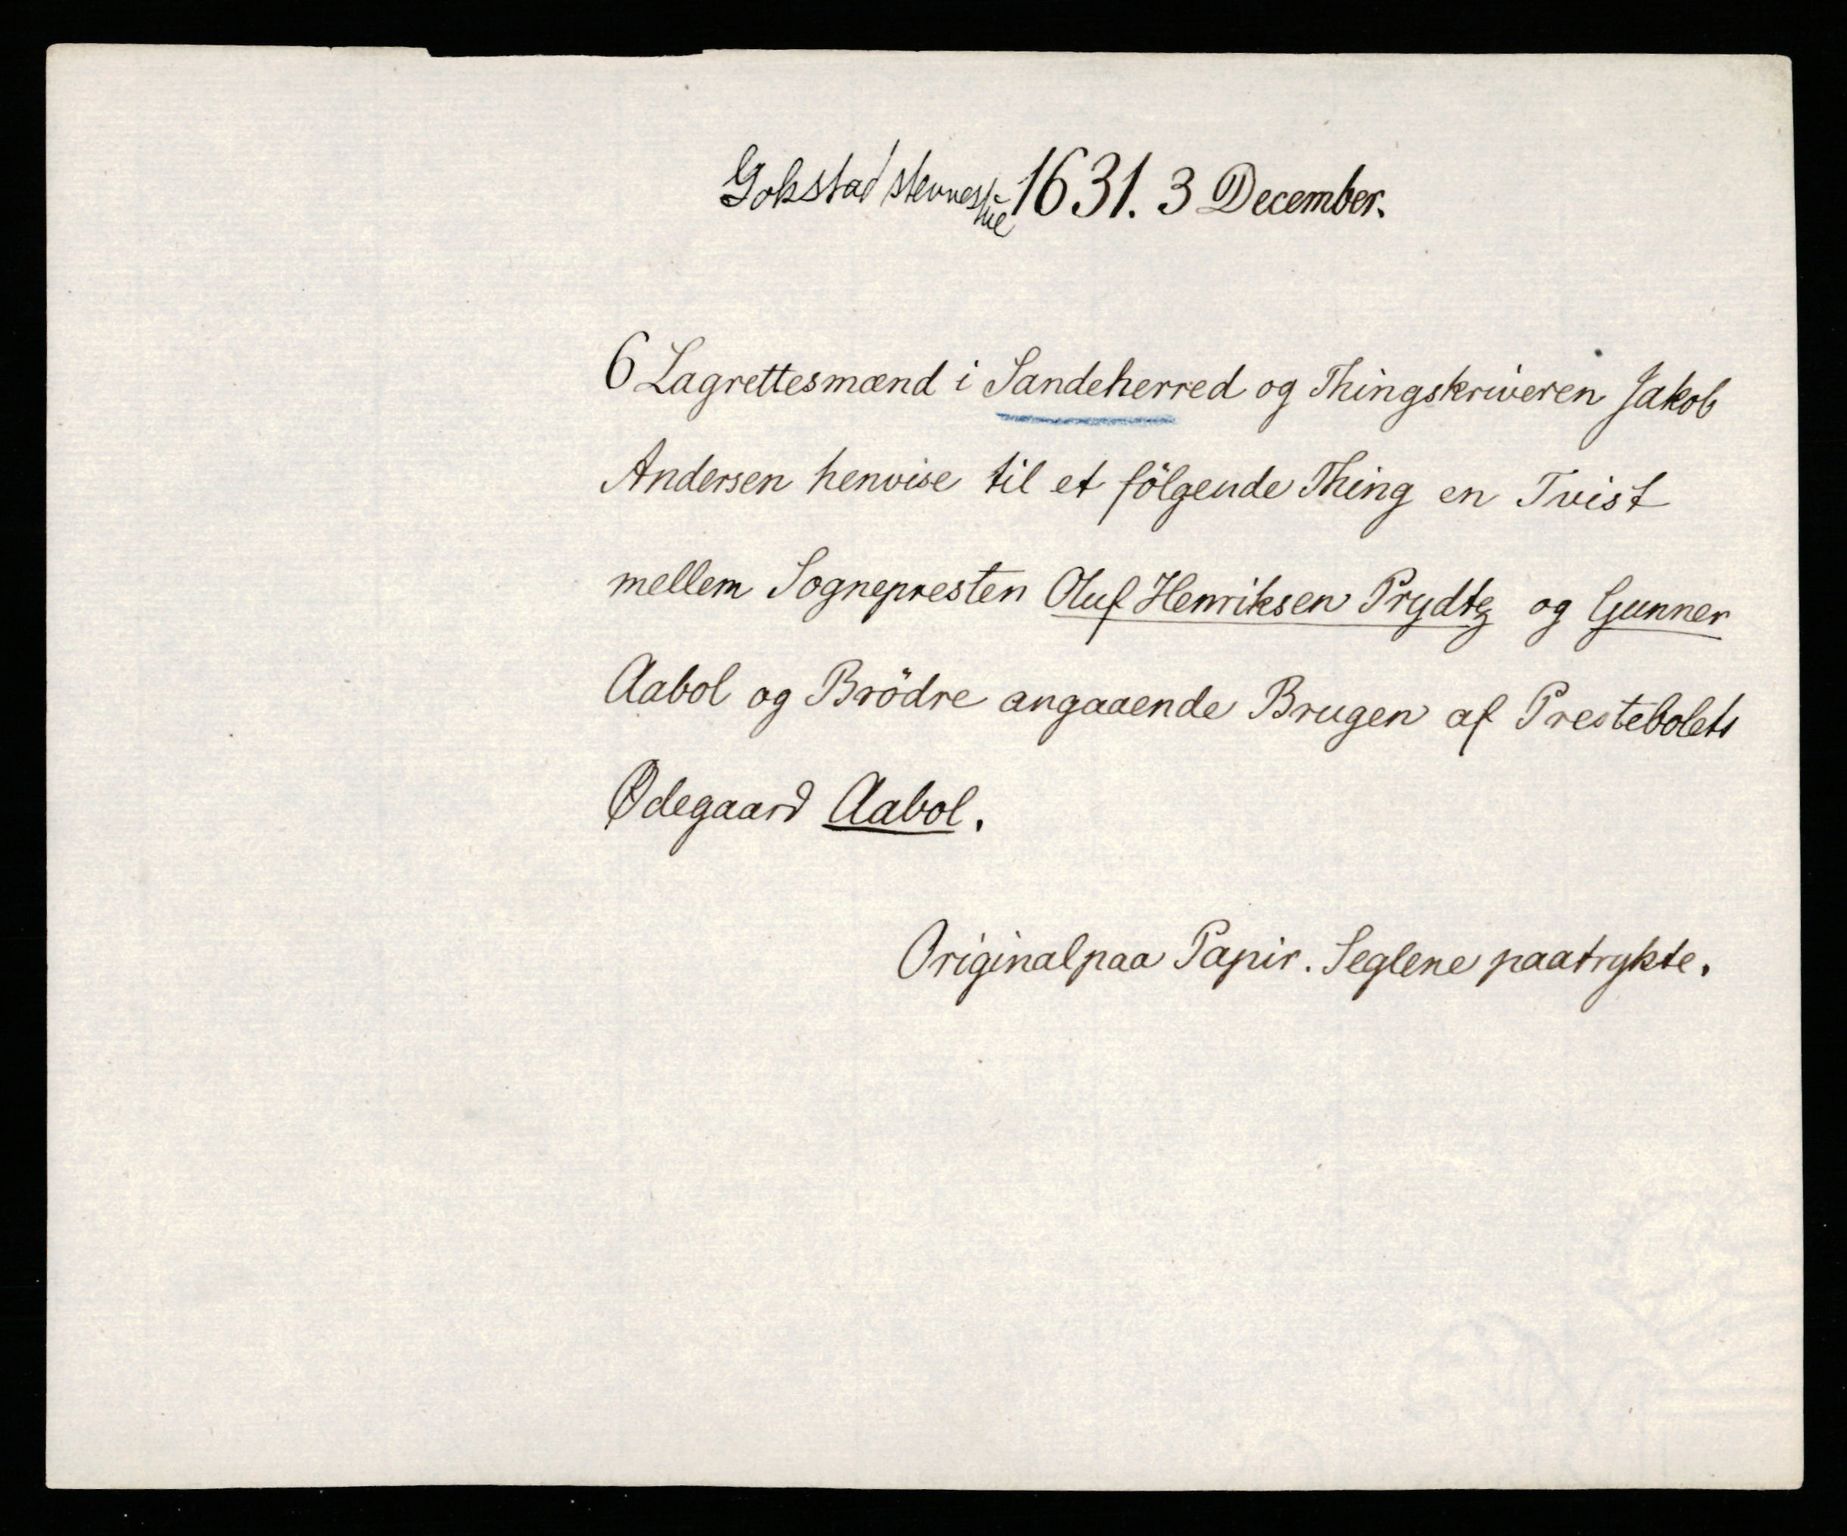 Gokstad stevnestue 1631. 3 December.
6 Lagrettesmænd i Sandeherred og Thingskriveren Jakob
Andersen henvise til et fölgende Thing en Tvist
mellem Sognepresten Oluf Henriksen Prydtz og Gunner
Aabol og Brödre angaaende Brugen af Prestebolets
Ødegaard Aabol.
Original paa Papir. Seglene paatrykte.